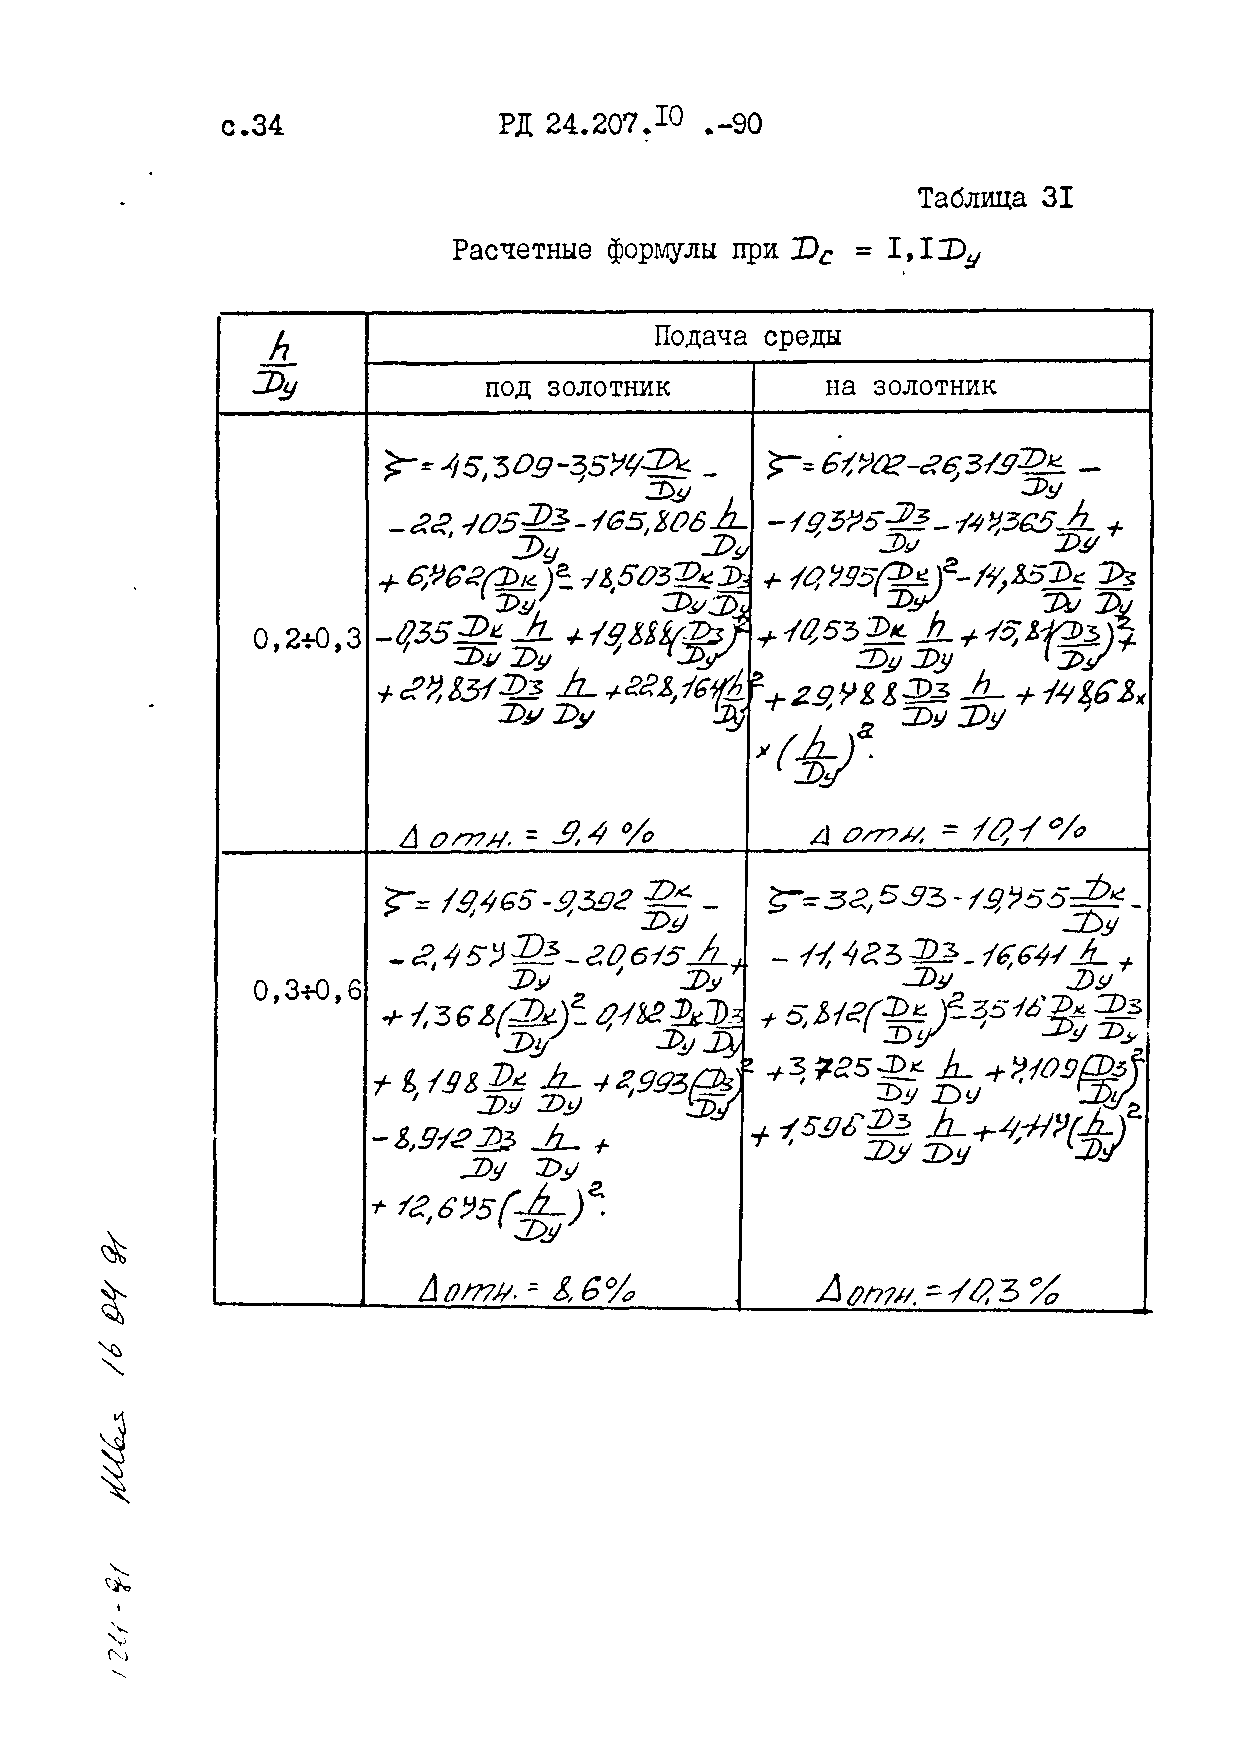 с.34 РД 24.207.I0 .-90
Таблица 3I
Расчетные формулы при Dc = I,I Dу
h/Dу
Подача среды
под золотник
на золотник
0,2÷0,3
ζ = 45,309-3,574 Dк/Dу -
- 22,105 Dз/Dу - 165,806 h/Dу
+ 6,762 (Dк/Dу)² - 18,503 Dк/Dу Dз/Dу
- 0,35 Dк/Dу h/Dу + 19,888 (Dз/Dу)²
+ 27,831 Dз/Dу h/Dу + 228,164 (h/Dу)²
Δ отн. = 9,4 %
ζ = 61,702-26,319 Dк/Dу -
- 19,375 Dз/Dу - 147,365 h/Dу +
+ 10,795 (Dк/Dу)² - 14,85 Dк/Dу Dз/Dу
+ 10,53 Dк/Dу h/Dу + 15,81 (Dз/Dу)² +
+ 29,788 Dз/Dу h/Dу + 148,68 ×
× (h/Dу)².
Δ отн. = 10,1 %
0,3÷0,6
ζ = 19,465 - 9,392 Dк/Dу -
- 2,457 Dз/Dу - 20,615 h/Dу +
+ 1,368 (Dк/Dу)² - 0,182 Dк/Dу Dз/Dу
+ 8,198 Dк/Dу h/Dу + 2,993 (Dз/Dу)²
- 8,912 Dз/Dу h/Dу +
+ 12,675 (h/Dу)².
Δ отн. = 8,6 %
ζ = 32,593 - 19,755 Dк/Dу -
- 11,423 Dз/Dу - 16,641 h/Dу +
+ 5,812 (Dк/Dу)² - 3,516 Dк/Dу Dз/Dу
+ 3,725 Dк/Dу h/Dу + 7,109 (Dз/Dу)²
+ 1,596 Dз/Dу h/Dу + 4,117 (h/Dу)²
Δ отн. = 10,3 %
16 04 91